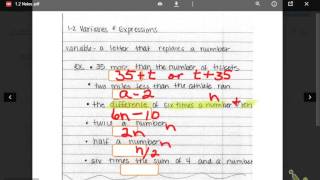 1.2 Notes.pdf
1-2 Variables & Expressions
variable - a letter that replaces a number
Ex. • 35 more than the number of tickets
35+t or t+35
• two miles less than the athlete ran
a-2
n
• the difference of six times a number + ten
6n-10
• twice a number n
2n
• half a number n
n/2
• six times the sum of 4 and a number